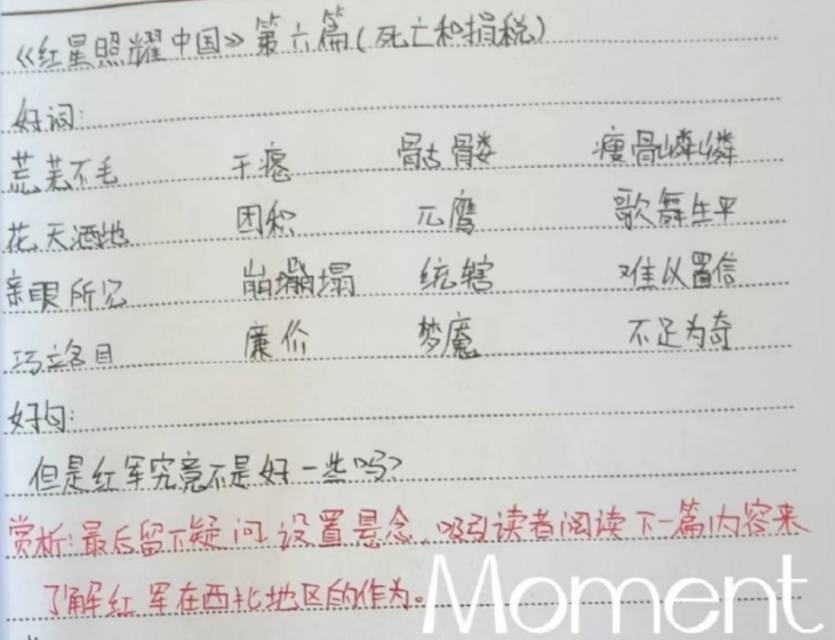 《红星照耀中国》第六篇(死亡和捐税)
好词:
荒芜不毛 干瘪 骷髅 瘦骨嶙嶙
花天酒地 囤积 兀鹰 歌舞生平
亲眼所见 崩塌 统辖 难以置信
巧立名目 廉价 梦魇 不足为奇
好句:
但是红军究竟是不是好一些吗?
赏析:最后留下疑问设置悬念,吸引读者阅读下一篇内容来
了解红军在西北地区的作为。
Moment